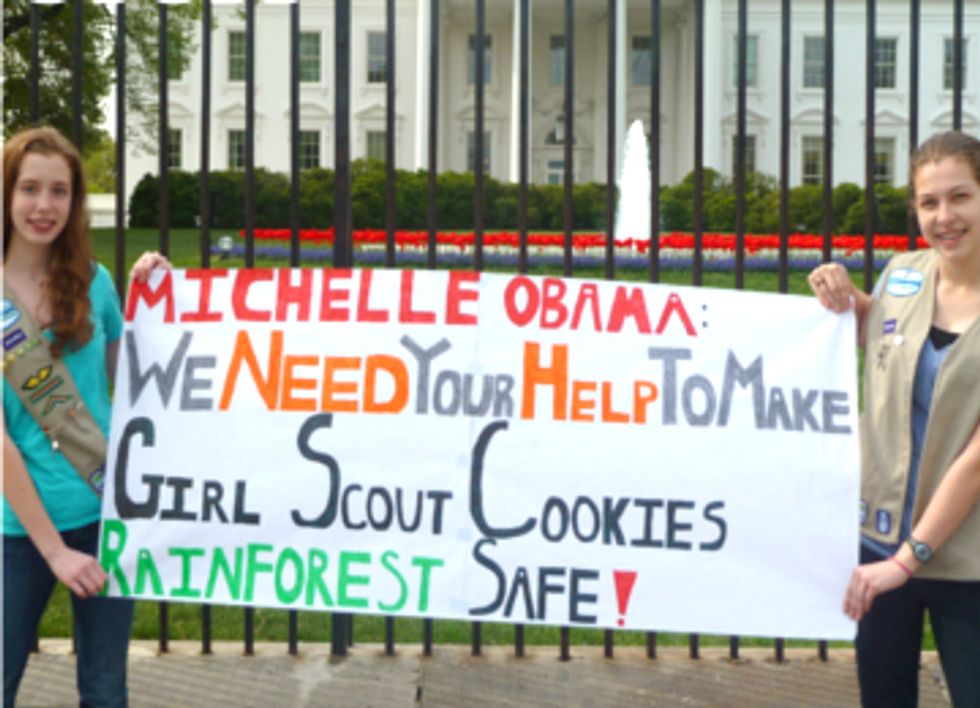 MICHELLE OBAMA:
WE NEED YOUR HELP TO MAKE
GIRL SCOUT COOKIES
RAINFOREST SAFE!